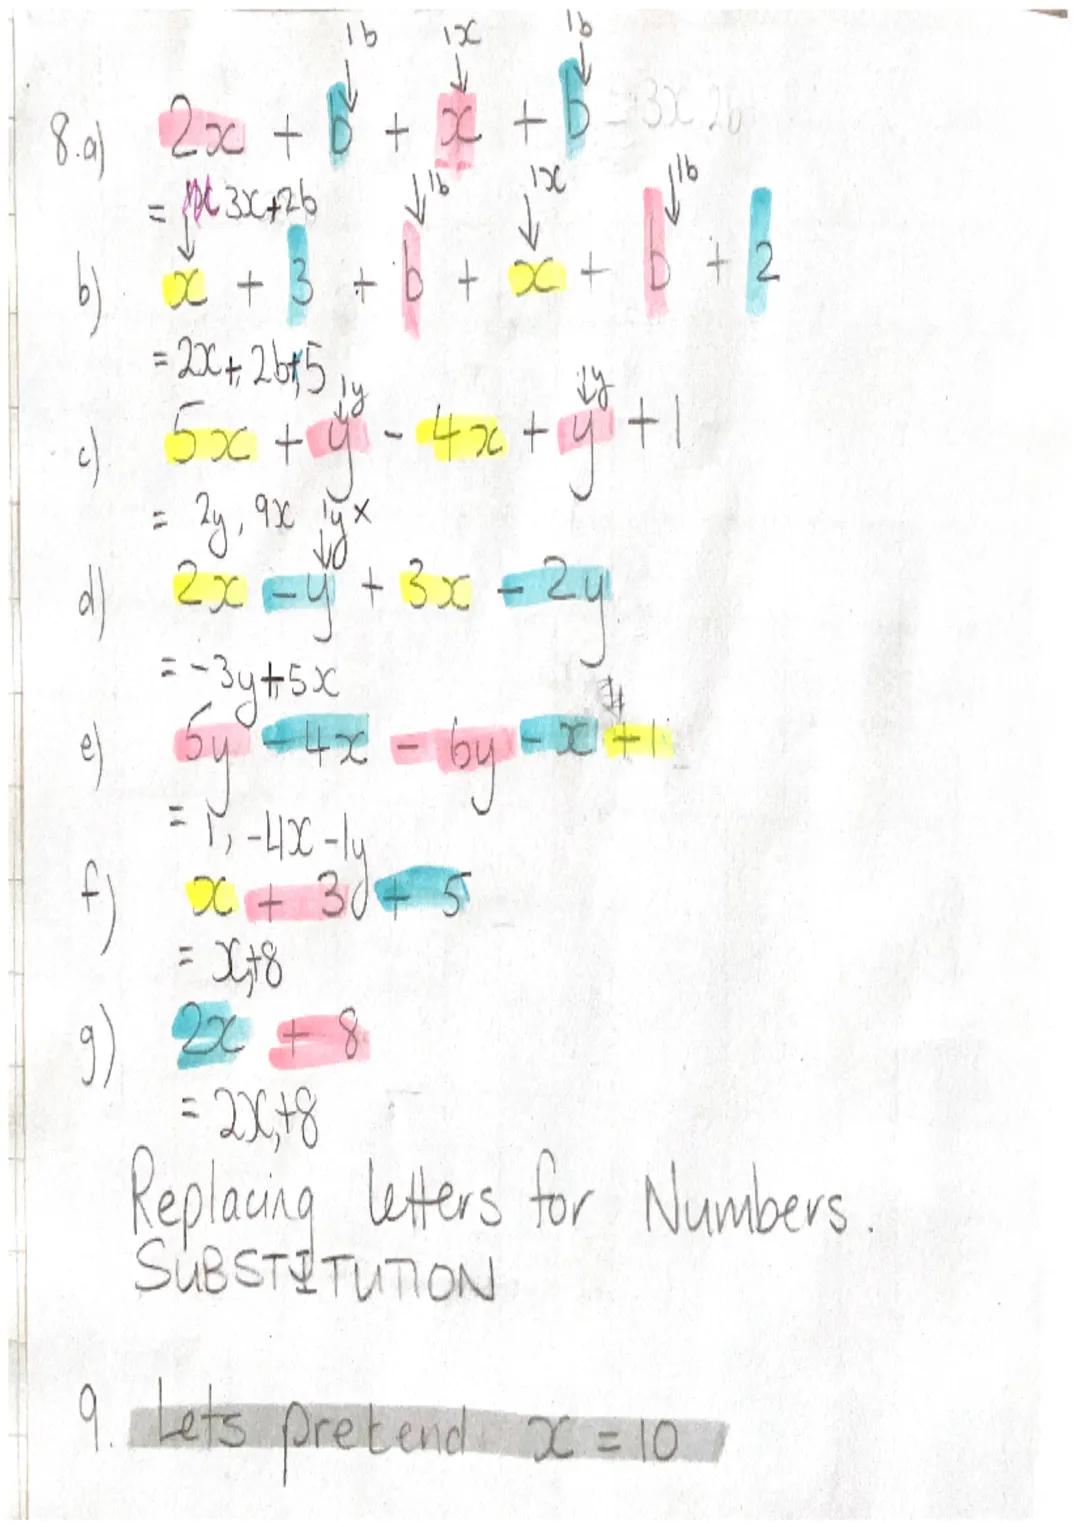 1b 1x 1b
8.a) 2x + b + x + b = 3x 2b
= 3x+2b 1b 1x 1b
b) x + 3 + b + x + b + 2
= 2x+, 2b+,5 1y 1y
c) 5x + y - 4x + y +1
= 2y, 9x 1y x
d) 2x -y + 3x - 2y
= -3y+5x
e) 5y -4x - 6y -x +1
= 1, -4x -1y
f) x + 3 + 5
= x,+8
g) 2x + 8
= 2x,+8
Replacing letters for Numbers.
SUBSTITUTION
9. Lets pretend x = 10